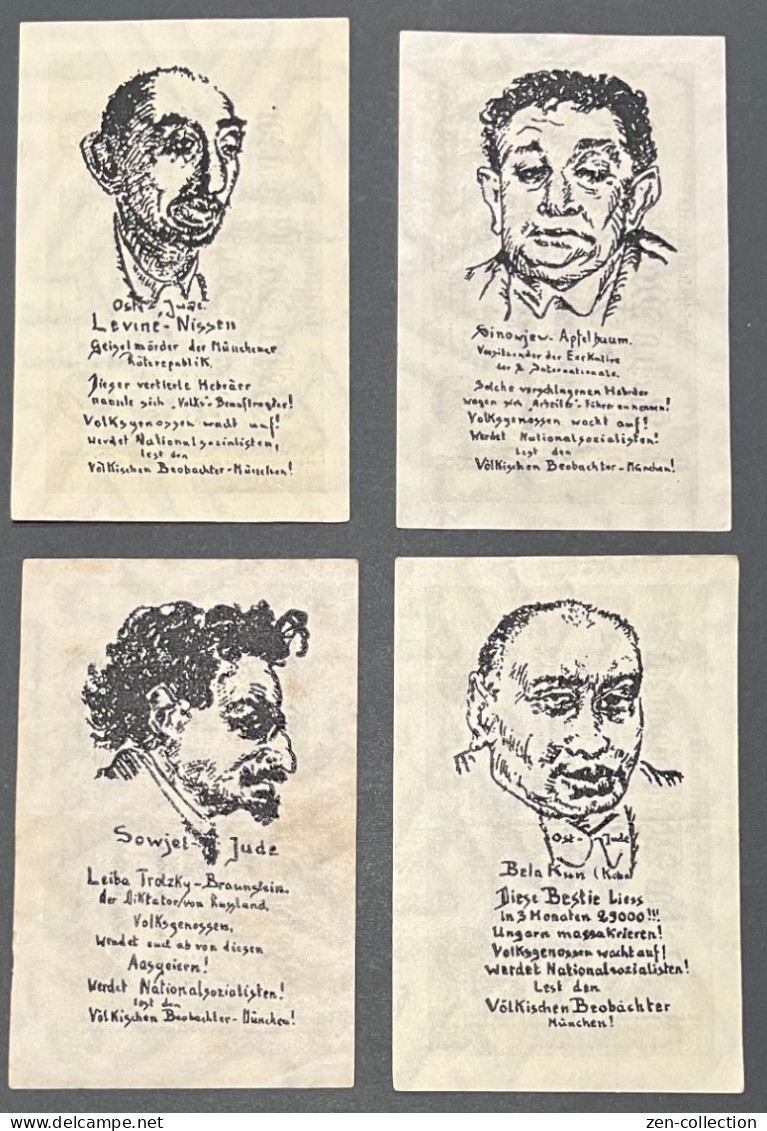 Ost-Jude.
Leviné-Nissen
Geiselmörder der Münchener
Räterepublik.
Dieser vertierte Hebräer
nannte sich "Volks"-Beauftragter!
Volksgenossen wacht auf!
Werdet Nationalsozialisten,
lest den
Völkischen Beobachter-München!
Sinowjew-Apfelbaum.
Vorsitzender der Exekutive
der Internationale.
Solche verschlagenen Hebräer
wagen sich "Arbeiter"-Führer zu nennen!
Volksgenossen wacht auf!
Werdet Nationalsozialisten!
Lest den
Völkischen Beobachter-München!
Sowjet-Jude
Leiba Trotzky-Braunstein.
der Diktator von Russland,
Volksgenossen,
wendet euch ab von diesen
Aasgeiern!
Werdet Nationalsozialisten!
lest den
Völkischen Beobachter-München!
Ost-Jude
Bela Kun (Kohn
Diese Bestie liess
in 3 Monaten 29000!!!
Ungarn massakrieren!
Volksgenossen wacht auf!
Werdet Nationalsozialisten!
Lest den
Völkischen Beobachter
München!
zen-collection